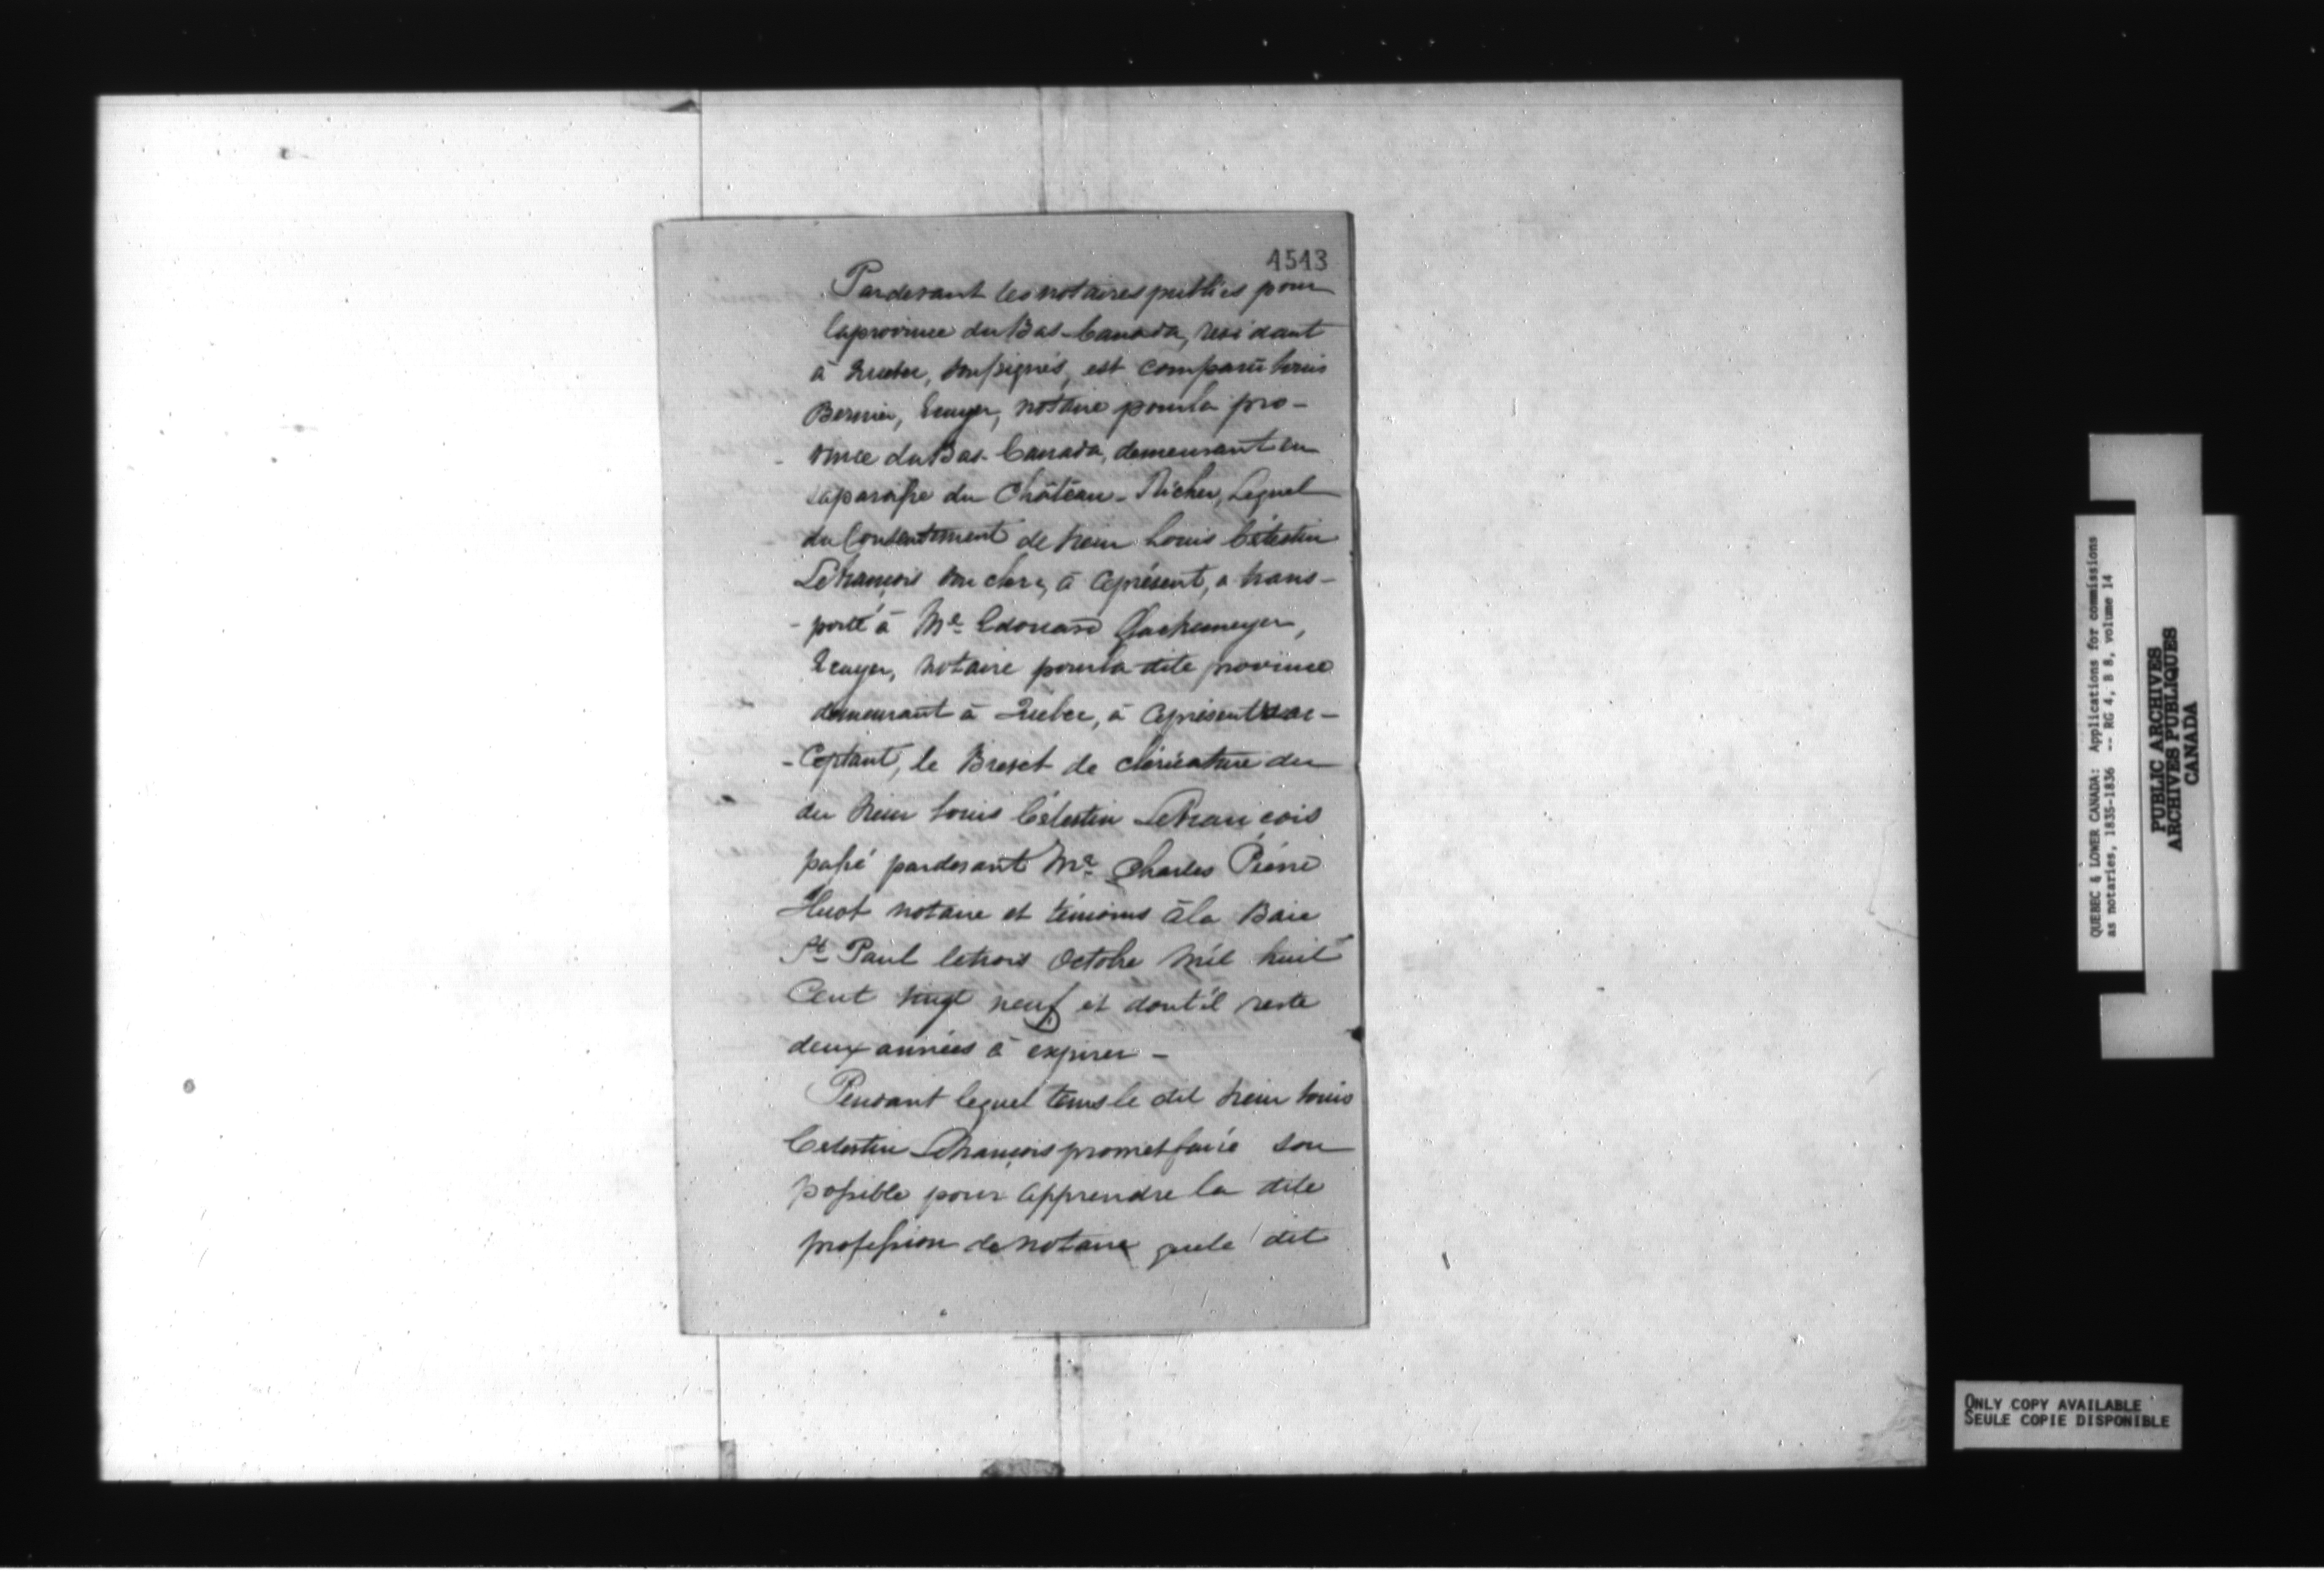 1513
Pardevant les notaires publics pour
la province du Bas-Canada, residant
à Quebec, soussignés, est comparu Louis
Bernier, Ecuyer, notaire pour la pro-
vince du Bas-Canada, demeurant en
la paroisse du Château-Richer, Lequel
du Consentement de Sieur Louis Célestin
Lefrançois son clerc, à ceprésent, a trans-
-porté à Me. Edouard Glackemeyer,
Ecuyer, notaire pour la dite province
demeurant à Quebec, à ceprésent & ac-
-Ceptant, le Brevet de cléricature du
du Sieur Louis Célestin Lefrançois
passé pardevant Me. Charles Pierre
Huot notaire et témoins à la Baie
St Paul le trois Octobre Mil huit
Cent vingt neuf et dont il reste
deux années à expirer -
Pendant lequel tems le dit Sieur Louis
Celestin Lefrançois promet faire son
possible pour apprendre la dite
profession de notaire que le dit
QUEBEC & LOWER CANADA: Applications for commissions
as notaries, 1835-1836 -- RG 4, B 8, volume 14
PUBLIC ARCHIVES
ARCHIVES PUBLIQUES
CANADA
ONLY COPY AVAILABLE
SEULE COPIE DISPONIBLE